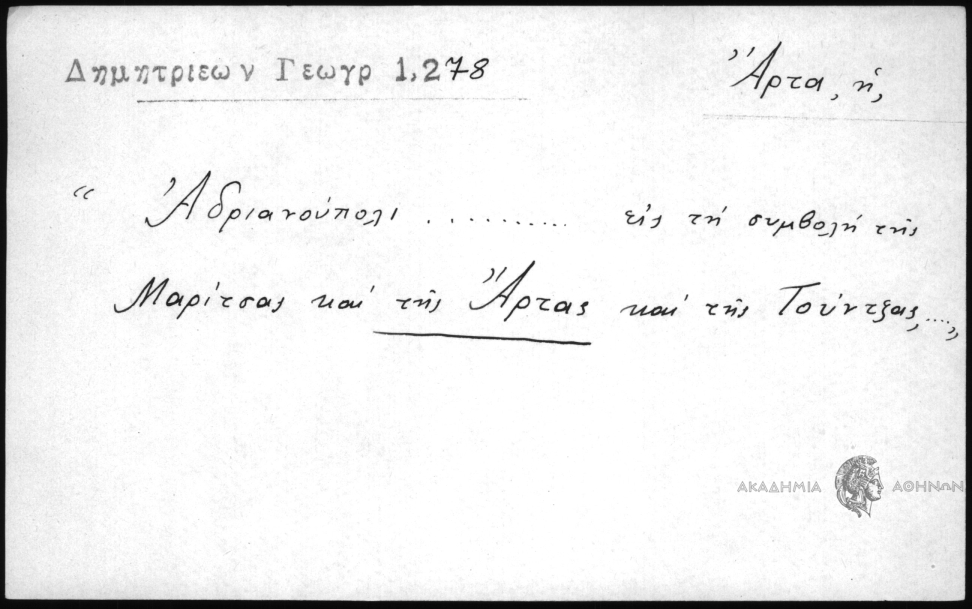 Δημητριεων Γεωγρ 1,278
Ἄρτα, ἡ,
“ Ἀδριανούπολι .......... εἰς τή συμβολή τῆς
Μαρίτσας καί τῆς Ἄρτας καί τῆς Τούντζας,....,,
ΑΚΑΔΗΜΙΑ ΑΘΗΝΩΝ